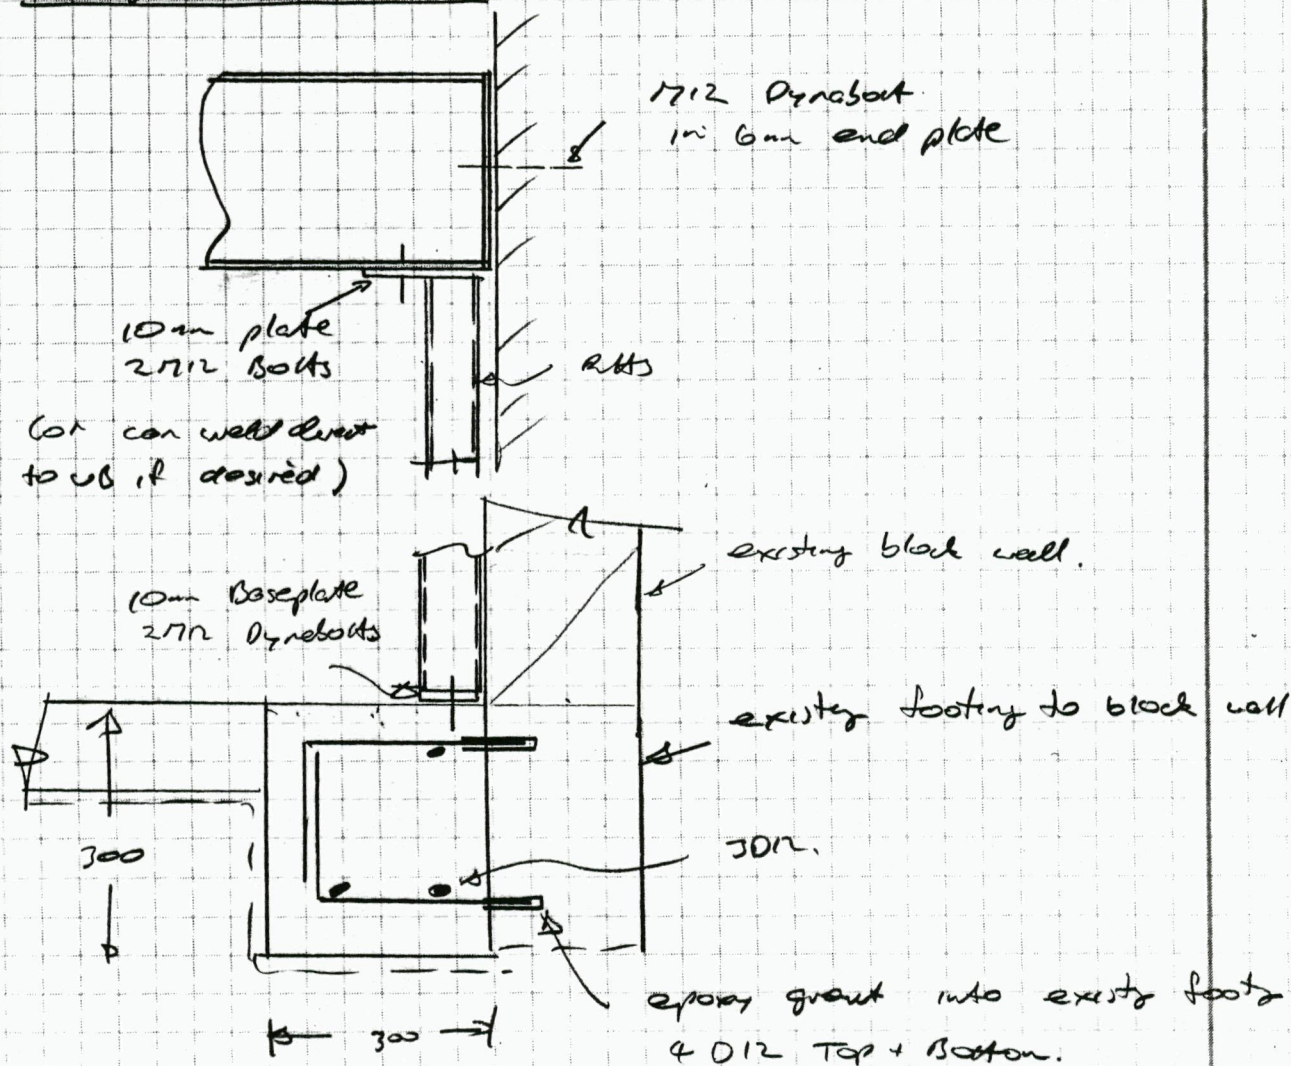 M12 Dynabolt
in 6mm end plate
10mm plate
2M12 Bolts
RHS
(or can weld direct
to UB if desired)
existing block wall.
10mm Baseplate
2M12 Dynabolts
existing footing to block wall
300
3D12.
epoxy grout into existg footg
300
4 D12 Top + Bottom.